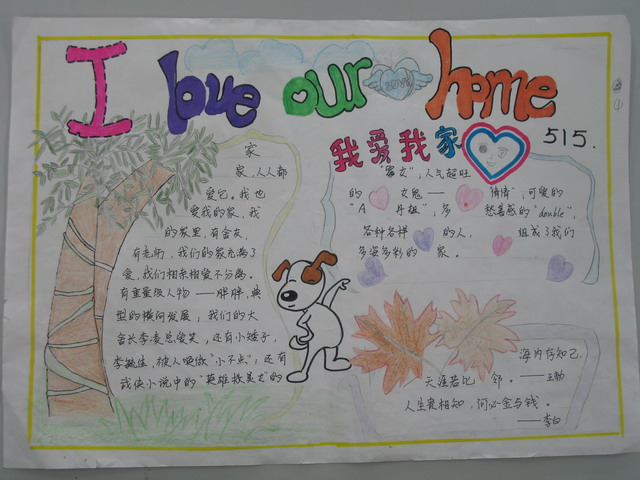 I love our home
我爱我家
515.
家
家,人人都
爱它。我也
爱我的家,我
的家里,有舍友,
有老师,我们的家充满了
爱,我们相亲相爱不分离,
有重量级人物——胖胖,典
型的横向发展,我们的大
舍长李凌总爱笑,还有小矮子,
李毓佳,被人唤做“小不点”,还有
武侠小说中的“英雄救美女”的
,人气超旺
的 女鬼—— 倩倩,可爱的
“A 丹姐”,多 愁善感的“double”,
各种各样 的人, 组成了我们
多姿多彩的 家。
海内存知己,
天涯若比 邻。——王勃
人生贵相知,何必金与钱。
——李白